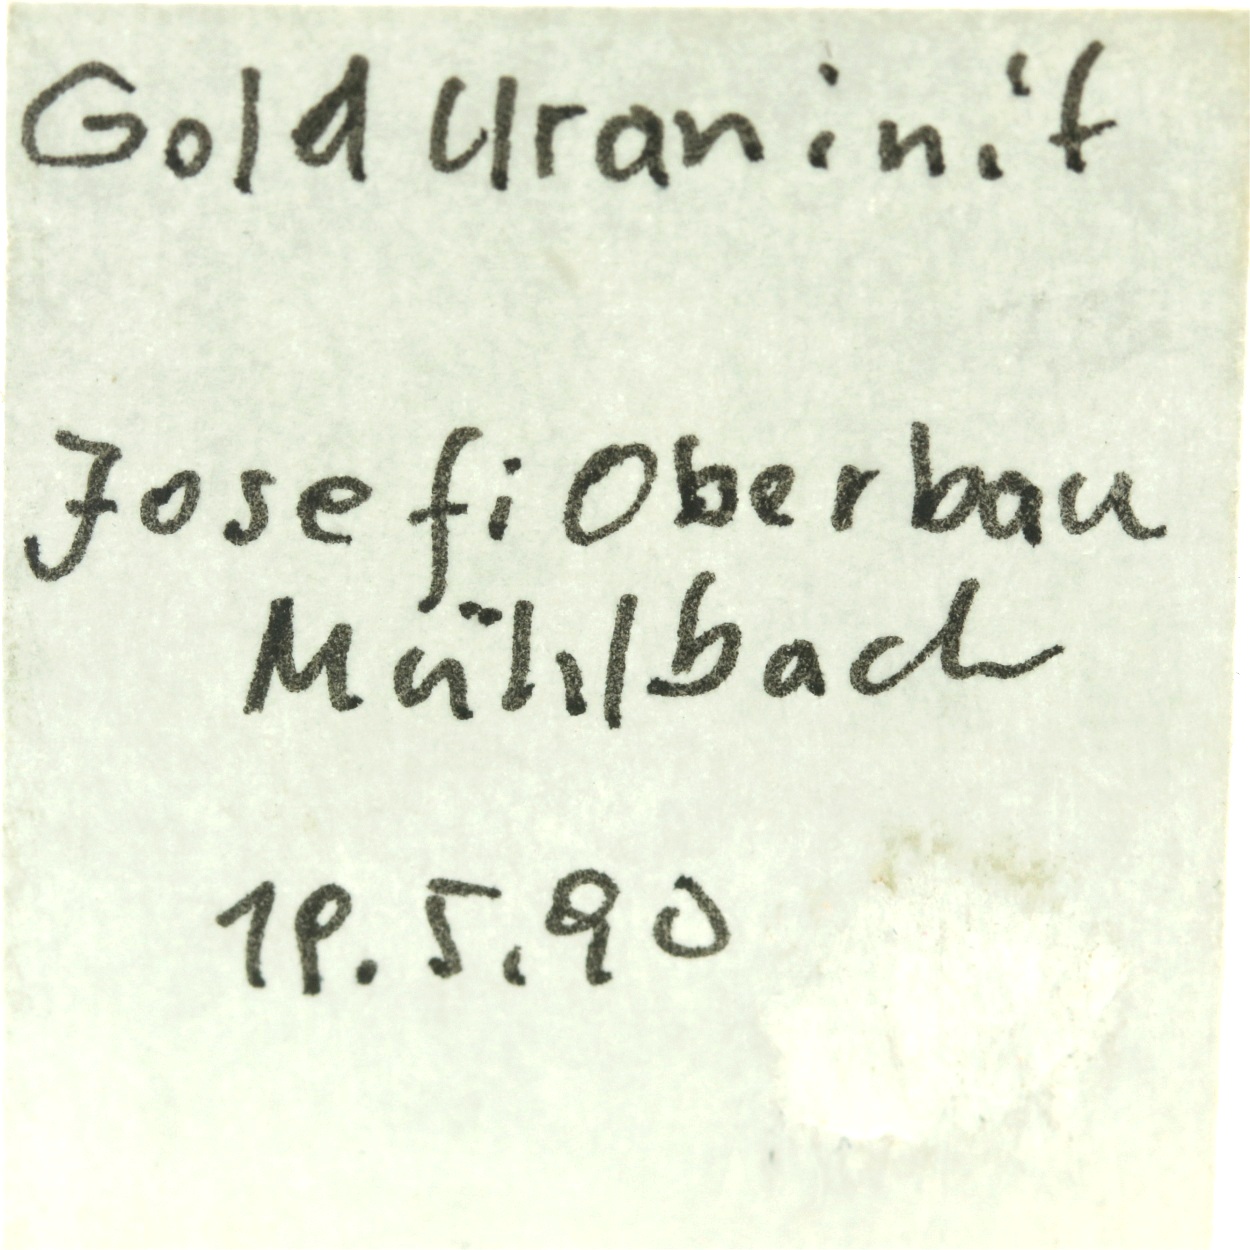 Gold Uraninit
Josefi Oberbau
Mühlbach
19.5.90